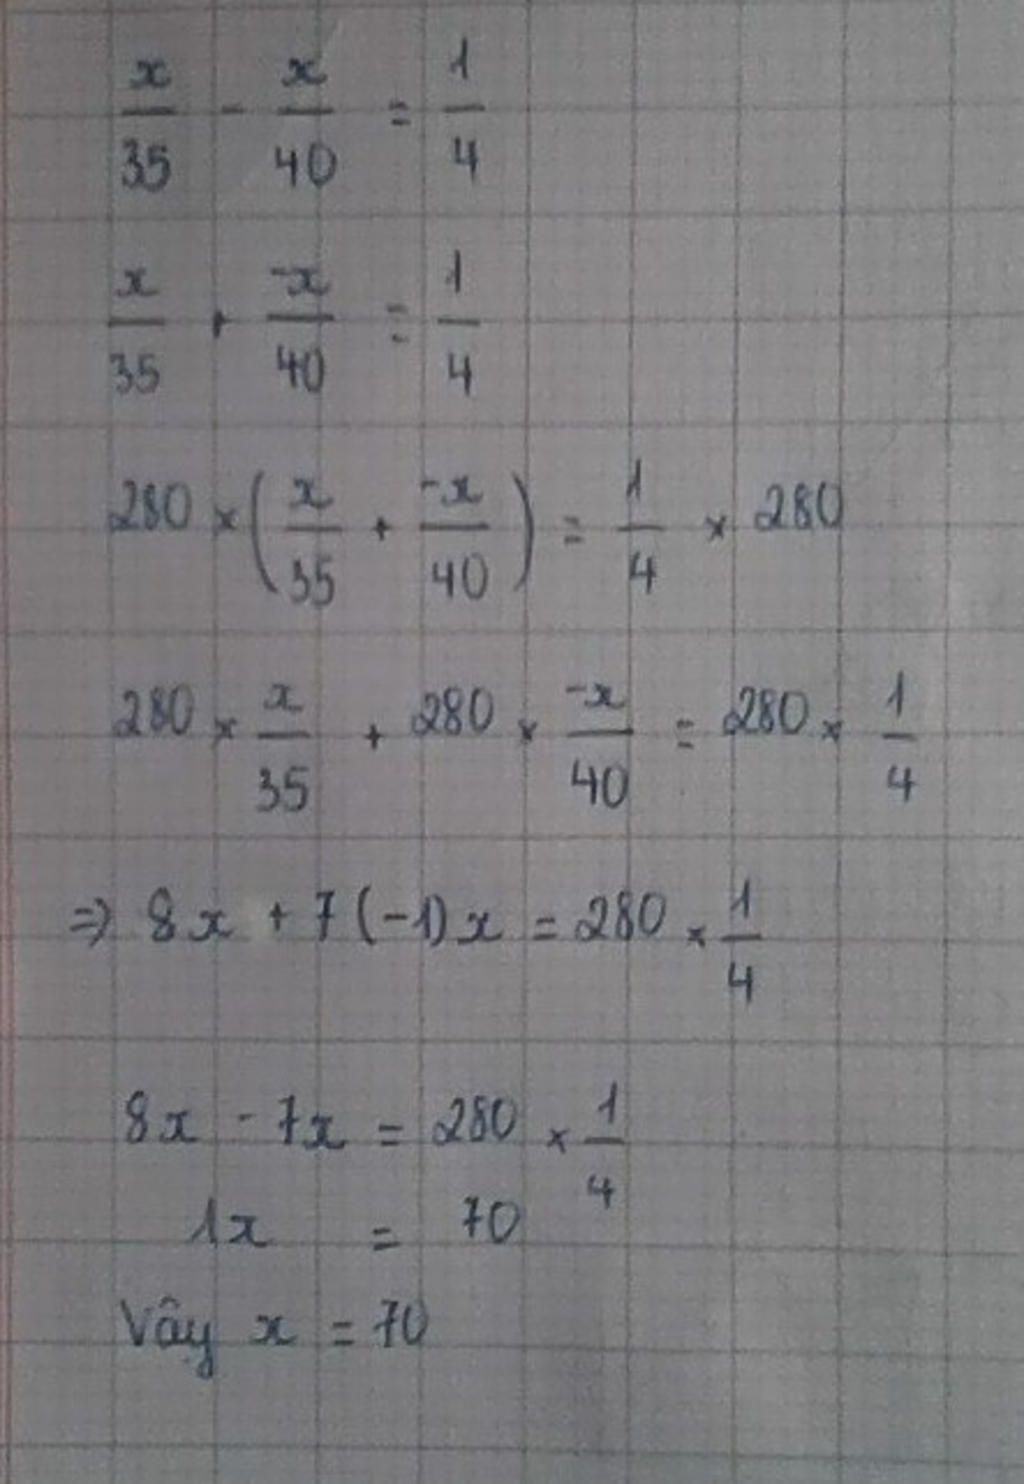 x/35 - x/40 = 1/4
x/35 + -x/40 = 1/4
280 × (x/35 + -x/40) = 1/4 × 280
280 × x/35 + 280 × -x/40 = 280 × 1/4
⇒ 8x + 7(-1)x = 280 × 1/4
8x - 7x = 280 × 1/4
1x = 70
Vây x = 70